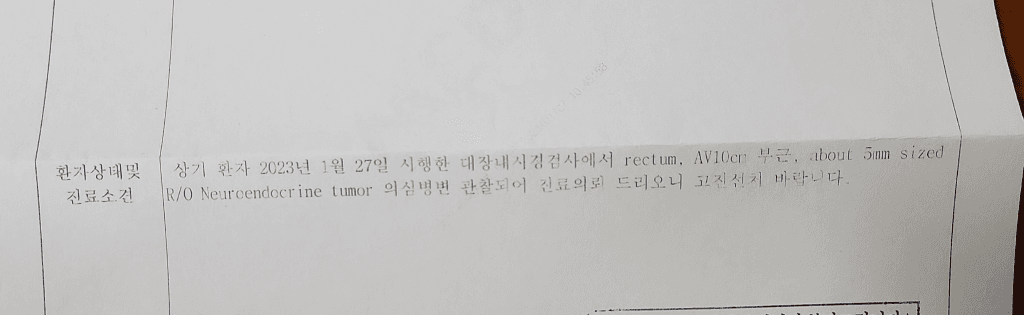 환자상태및
진료소견
상기 환자 2023년 1월 27일 시행한 대장내시경검사에서 rectum, AV10cm 부근, about 5mm sized
R/O Neuroendocrine tumor 의심병변 관찰되어 진료의뢰 드리오니 고진선처 바랍니다.